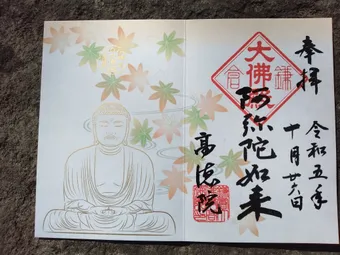 奉拝
令和五年
十月廿六日
大佛殿
鎌倉
阿弥陀如来
高徳院